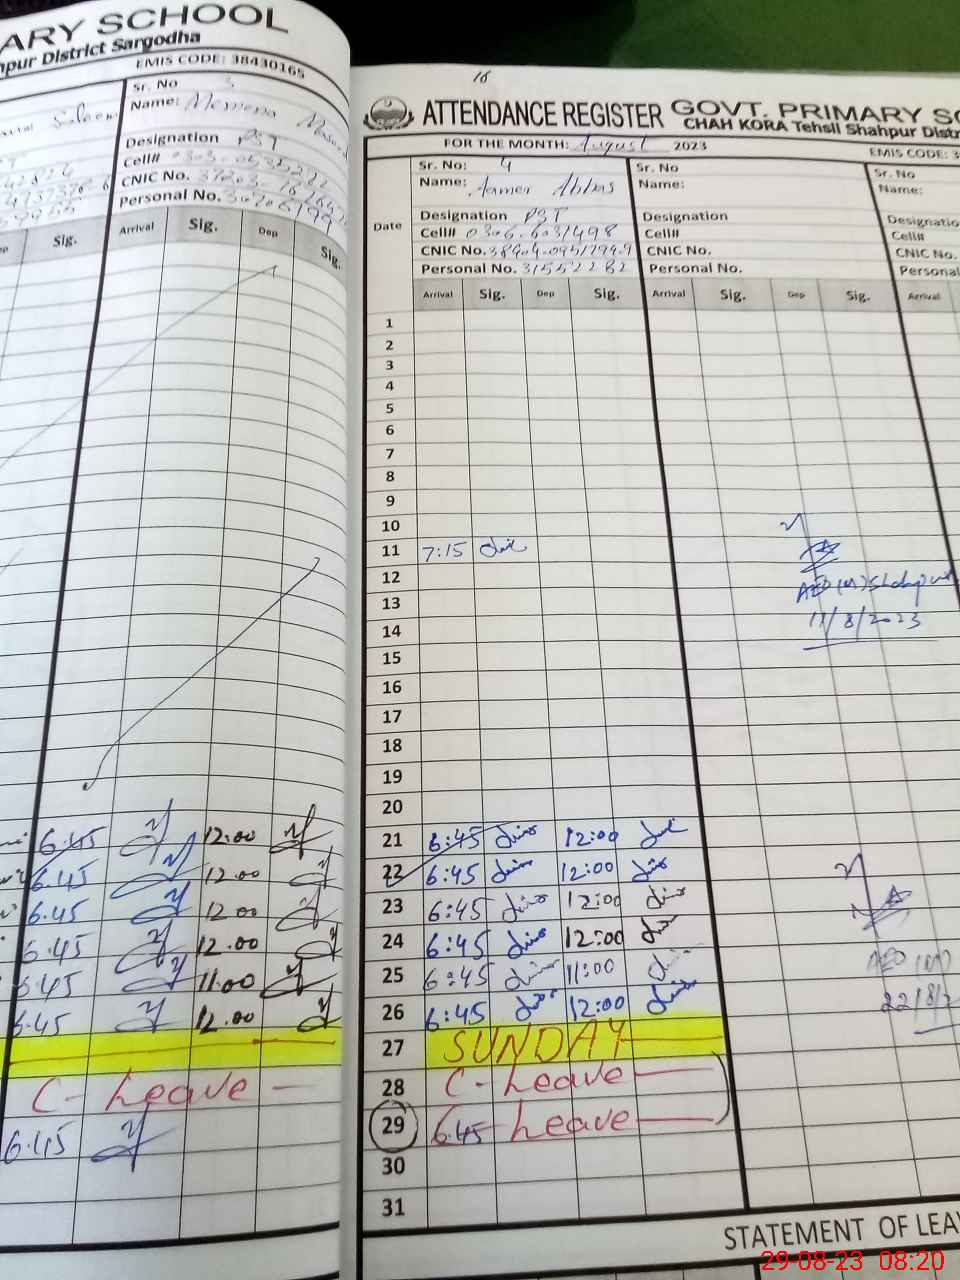 ARY SCHOOL
hpur District Sargodha
EMIS CODE: 38430165
Saleem
Sr. No 3
Name: Memona
Designation PST
Cell#
CNIC No.
Personal No.
Sig.
Arrival Sig. Dep Sig.
6.45 12:00
6.45 12.00
6.45 12.00
6.45 12.00
6.45 11.00
6.45 12.00
C-Leave
6.45
16
ATTENDANCE REGISTER GOVT. PRIMARY SC
CHAH KORA Tehsil Shahpur Distr
FOR THE MONTH: August 2023
EMIS CODE: 3
Sr. No: 4
Name: Aamer Abbas
Designation PST
Cell# 0306.6031498
CNIC No.
Personal No. 31552282
Sr. No
Name:
Designation
Cell#
CNIC No.
Personal No.
Sr. No
Name:
Designatio
Cell#
CNIC No.
Personal
Date
Arrival Sig. Dep Sig. Arrival Sig. Dep Sig. Arrival
1
2
3
4
5
6
7
8
9
10
11 7:15
12
13
14
15
16
17
18
19
20
21 6:45 12:00
22 6:45 12:00
23 6:45 12:00
24 6:45 12:00
25 6:45 11:00
26 6:45 12:00
27 SUNDAY
28 C-Leave
29 6.45 Leave
30
31
AEO (M) Shahpur
11/8/2023
AEO (M)
22/8/2
STATEMENT OF LEA
29-08-23 08:20